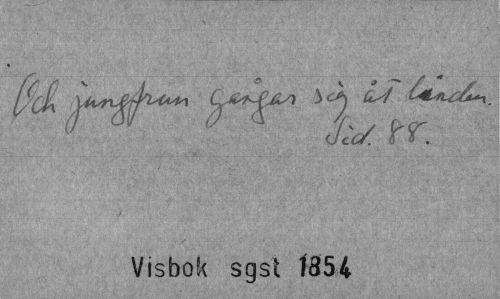 Och jungfrun gångar sig åt linden.
Sid. 88.
Visbok sgst 1854